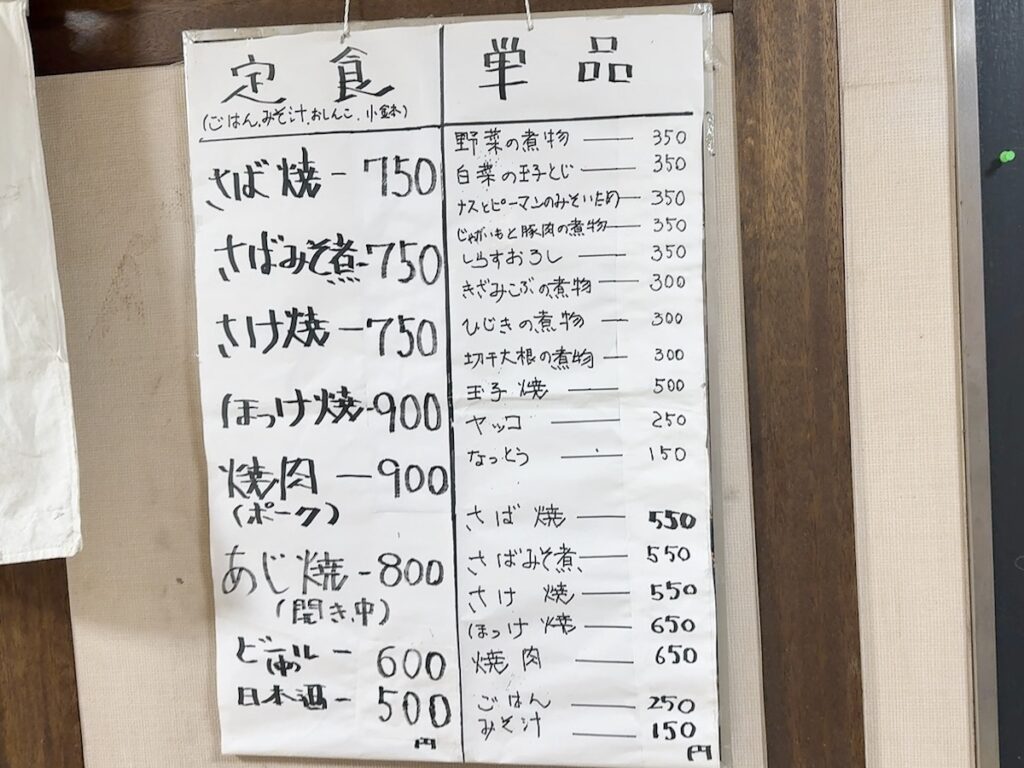 定食
(ごはん、みそ汁、おしんこ、小鉢)
さば焼 - 750
さばみそ煮 - 750
さけ焼 - 750
ほっけ焼 - 900
焼肉 - 900
(ポーク)
あじ焼 - 800
(開き、中)
ビール - 600
日本酒 - 500
円
単品
野菜の煮物 — 350
白菜の玉子とじ — 350
ナスとピーマンのみそいため — 350
じゃがいもと豚肉の煮物 — 350
しらすおろし — 350
きざみこぶの煮物 — 300
ひじきの煮物 — 300
切干大根の煮物 — 300
玉子焼 — 500
ヤッコ — 250
なっとう — 150
さば焼 — 550
さばみそ煮 — 550
さけ焼 — 550
ほっけ焼 — 650
焼肉 — 650
ごはん — 250
みそ汁 — 150
円